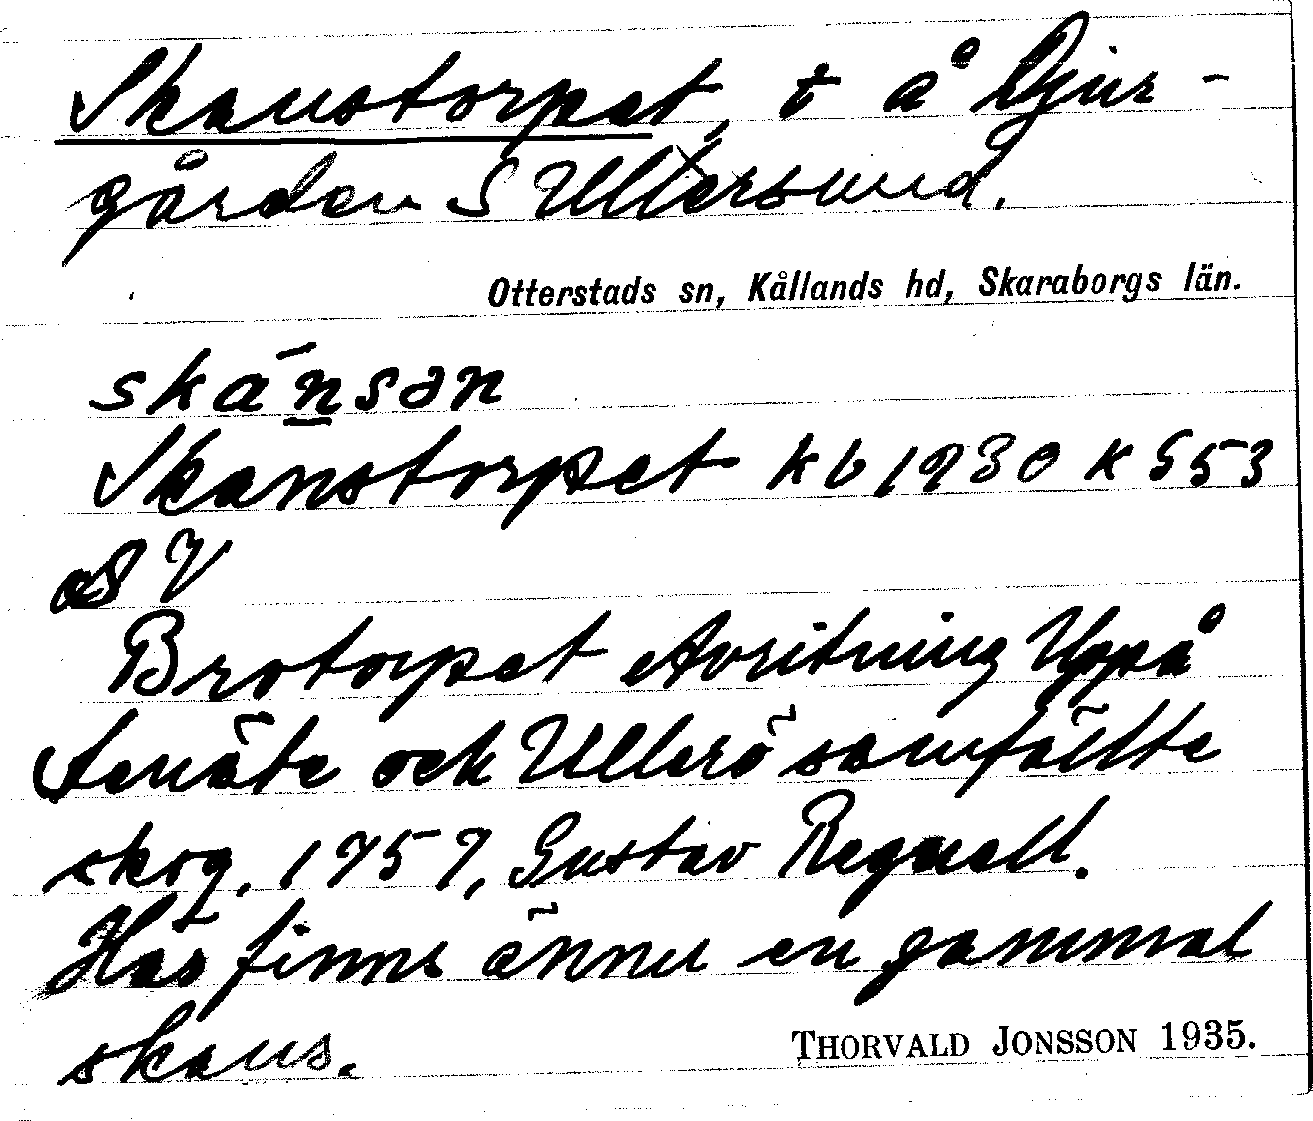 Skanstorpet, t å Djur-
gården S Ullersund.
Otterstads sn, Kållands hd, Skaraborgs län.
skánsan
Skanstorpet kb 1930 k 553
o S V
Brotorpet Avritning Uppå
Senäte och Ullerö samfällte
skog, 1757, Gustav Regnell.
Här finns ännu en gammal
skans.
THORVALD JONSSON 1935.